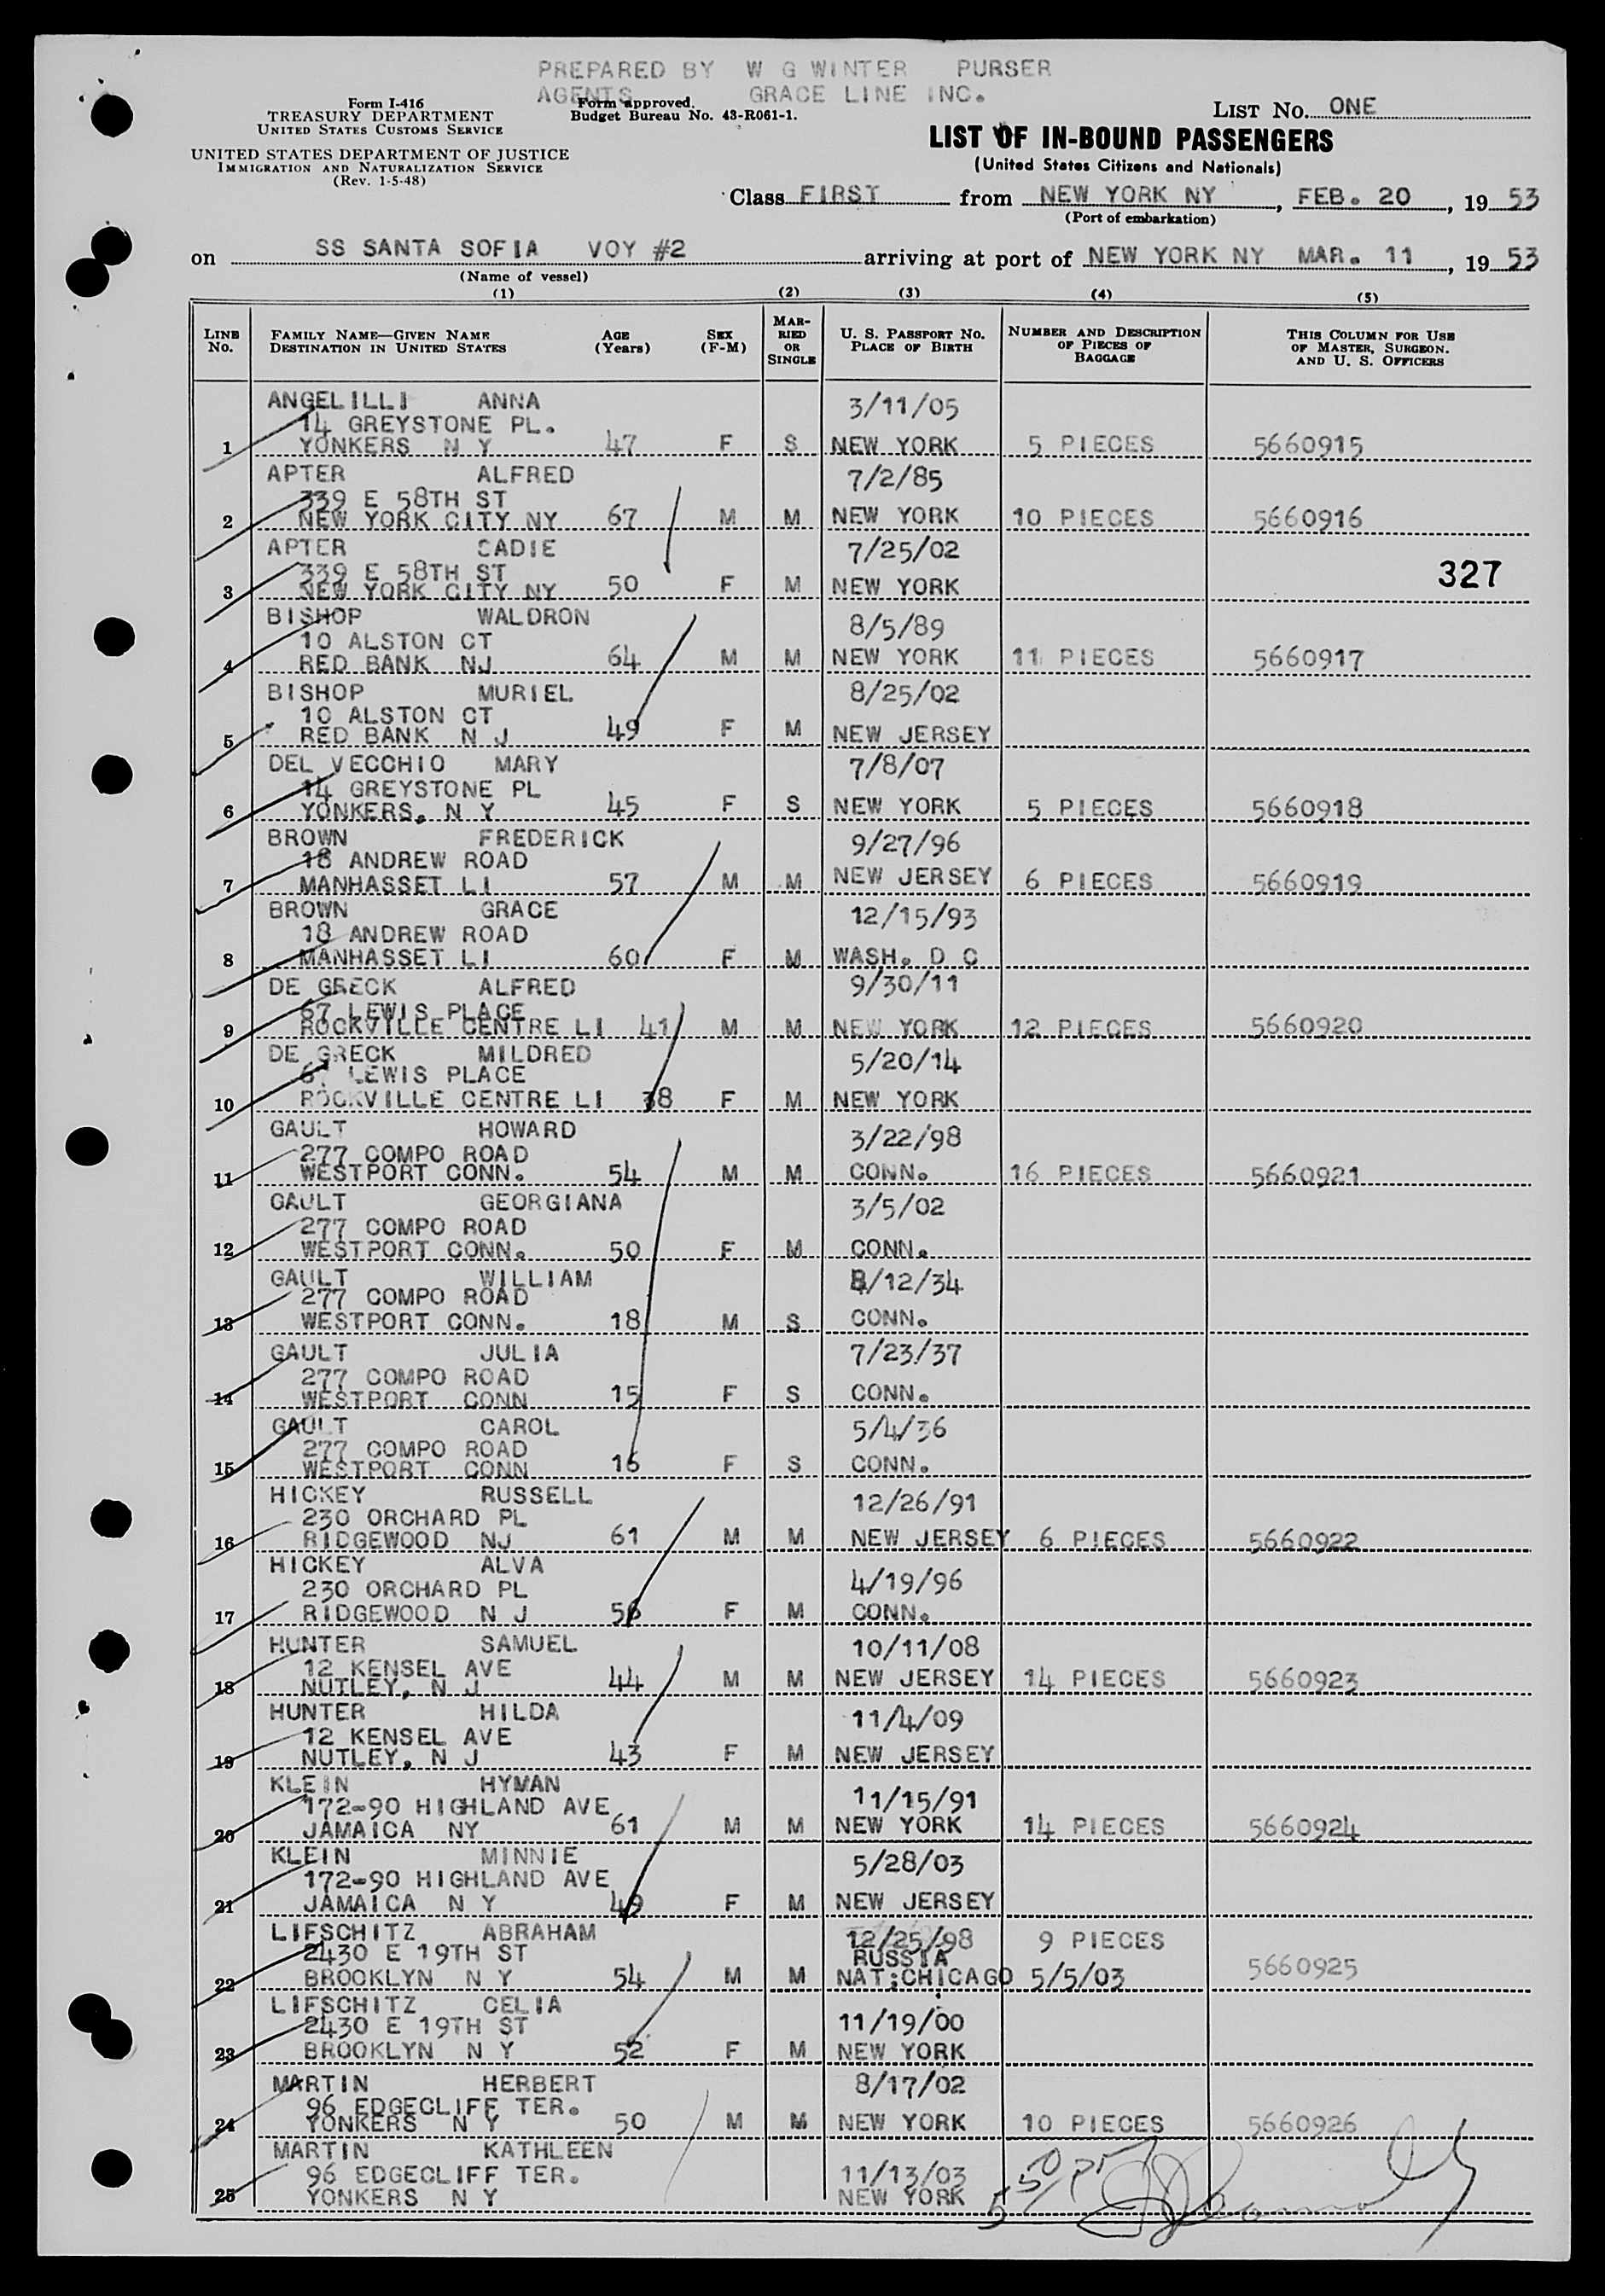 PREPARED BY W G WINTER PURSER
AGENTS GRACE LINE INC.
Form I-416
TREASURY DEPARTMENT
UNITED STATES CUSTOMS SERVICE
Form approved.
Budget Bureau No. 43-R061-1.
LIST NO. ONE
UNITED STATES DEPARTMENT OF JUSTICE
IMMIGRATION AND NATURALIZATION SERVICE
(Rev. 1-5-48)
LIST OF IN-BOUND PASSENGERS
(United States Citizens and Nationals)
Class FIRST from NEW YORK NY, FEB. 20, 1953
(Port of embarkation)
on SS SANTA SOFIA VOY #2 arriving at port of NEW YORK NY MAR. 11, 1953
(Name of vessel)
(1) (2) (3) (4) (5)
LINE NO. FAMILY NAME—GIVEN NAME DESTINATION IN UNITED STATES AGE (Years) SEX (F-M) MARRIED OR SINGLE U. S. PASSPORT NO. PLACE OF BIRTH NUMBER AND DESCRIPTION OF PIECES OF BAGGAGE THIS COLUMN FOR USE OF MASTER, SURGEON. AND U. S. OFFICERS
ANGELILLI ANNA 3/11/05
14 GREYSTONE PL.
1 YONKERS N Y 47 F S NEW YORK 5 PIECES 5660915
APTER ALFRED 7/2/85
339 E 58TH ST
2 NEW YORK CITY NY 67 M M NEW YORK 10 PIECES 5660916
APTER CADIE 7/25/02
339 E 58TH ST
3 NEW YORK CITY NY 50 F M NEW YORK 327
BISHOP WALDRON 8/5/89
10 ALSTON CT
4 RED BANK NJ 64 M M NEW YORK 11 PIECES 5660917
BISHOP MURIEL 8/25/02
10 ALSTON CT
5 RED BANK N J 49 F M NEW JERSEY
DEL VECCHIO MARY 7/8/07
14 GREYSTONE PL
6 YONKERS, N Y 45 F S NEW YORK 5 PIECES 5660918
BROWN FREDERICK 9/27/96
18 ANDREW ROAD
7 MANHASSET LI 57 M M NEW JERSEY 6 PIECES 5660919
BROWN GRACE 12/15/93
18 ANDREW ROAD
8 MANHASSET LI 60 F M WASH. D C
DE GRECK ALFRED 9/30/11
67 LEWIS PLACE
9 ROCKVILLE CENTRE LI 41 M M NEW YORK 12 PIECES 5660920
DE GRECK MILDRED 5/20/14
LEWIS PLACE
10 ROCKVILLE CENTRE LI 38 F M NEW YORK
GAULT HOWARD 3/22/98
277 COMPO ROAD
11 WESTPORT CONN. 54 M M CONN. 16 PIECES 5660921
GAULT GEORGIANA 3/5/02
277 COMPO ROAD
12 WESTPORT CONN. 50 F M CONN.
GAULT WILLIAM
277 COMPO ROAD
13 WESTPORT CONN. 18 M S CONN.
GAULT JULIA 7/23/37
277 COMPO ROAD
14 WESTPORT CONN 15 F S CONN.
GAULT CAROL 5/4/36
277 COMPO ROAD
15 WESTPORT CONN 16 F S CONN.
HICKEY RUSSELL 12/26/91
230 ORCHARD PL
16 RIDGEWOOD NJ 61 M M NEW JERSEY 6 PIECES 5660922
HICKEY ALVA 4/19/96
230 ORCHARD PL
17 RIDGEWOOD N J 56 F M CONN.
HUNTER SAMUEL 10/11/08
12 KENSEL AVE
18 NUTLEY, N J 44 M M NEW JERSEY 14 PIECES 5660923
HUNTER HILDA 11/4/09
12 KENSEL AVE
19 NUTLEY, N J 43 F M NEW JERSEY
KLEIN HYMAN 11/15/91
172-90 HIGHLAND AVE
20 JAMAICA NY 61 M M NEW YORK 14 PIECES 5660924
KLEIN MINNIE 5/28/03
172-90 HIGHLAND AVE
21 JAMAICA N Y 49 F M NEW JERSEY
LIFSCHITZ ABRAHAM 12/25/98 9 PIECES
2430 E 19TH ST RUSSIA
22 BROOKLYN N Y 54 M M NAT:CHICAGO 5/5/03 5660925
LIFSCHITZ CELIA 11/19/00
2430 E 19TH ST
23 BROOKLYN N Y 52 F M NEW YORK
MARTIN HERBERT 8/17/02
96 EDGECLIFF TER.
24 YONKERS N Y 50 M M NEW YORK 10 PIECES 5660926
MARTIN KATHLEEN
96 EDGECLIFF TER. 11/13/03
25 YONKERS N Y NEW YORK